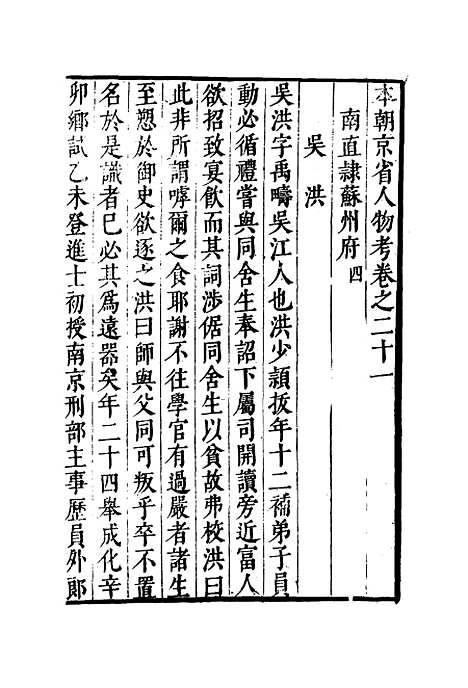 本朝京省人物考卷之二十一
南直隷蘇州府四
吳洪
吳洪字禹疇吳江人也洪少頴拔年十二補弟子員
動必循禮嘗與同舍生奉詔下屬司開讀旁近富人
欲招致宴飲而其詞渉倨同舍生以貧故弗校洪曰
此非所謂嘑爾之食耶謝不往學官有過嚴者諸生
至愬於御史欲逐之洪曰師與父同可叛乎卒不置
名於是識者已必其爲遠器矣年二十四舉成化辛
卯鄉試乙未登進士初授南京刑部主事歷員外郞